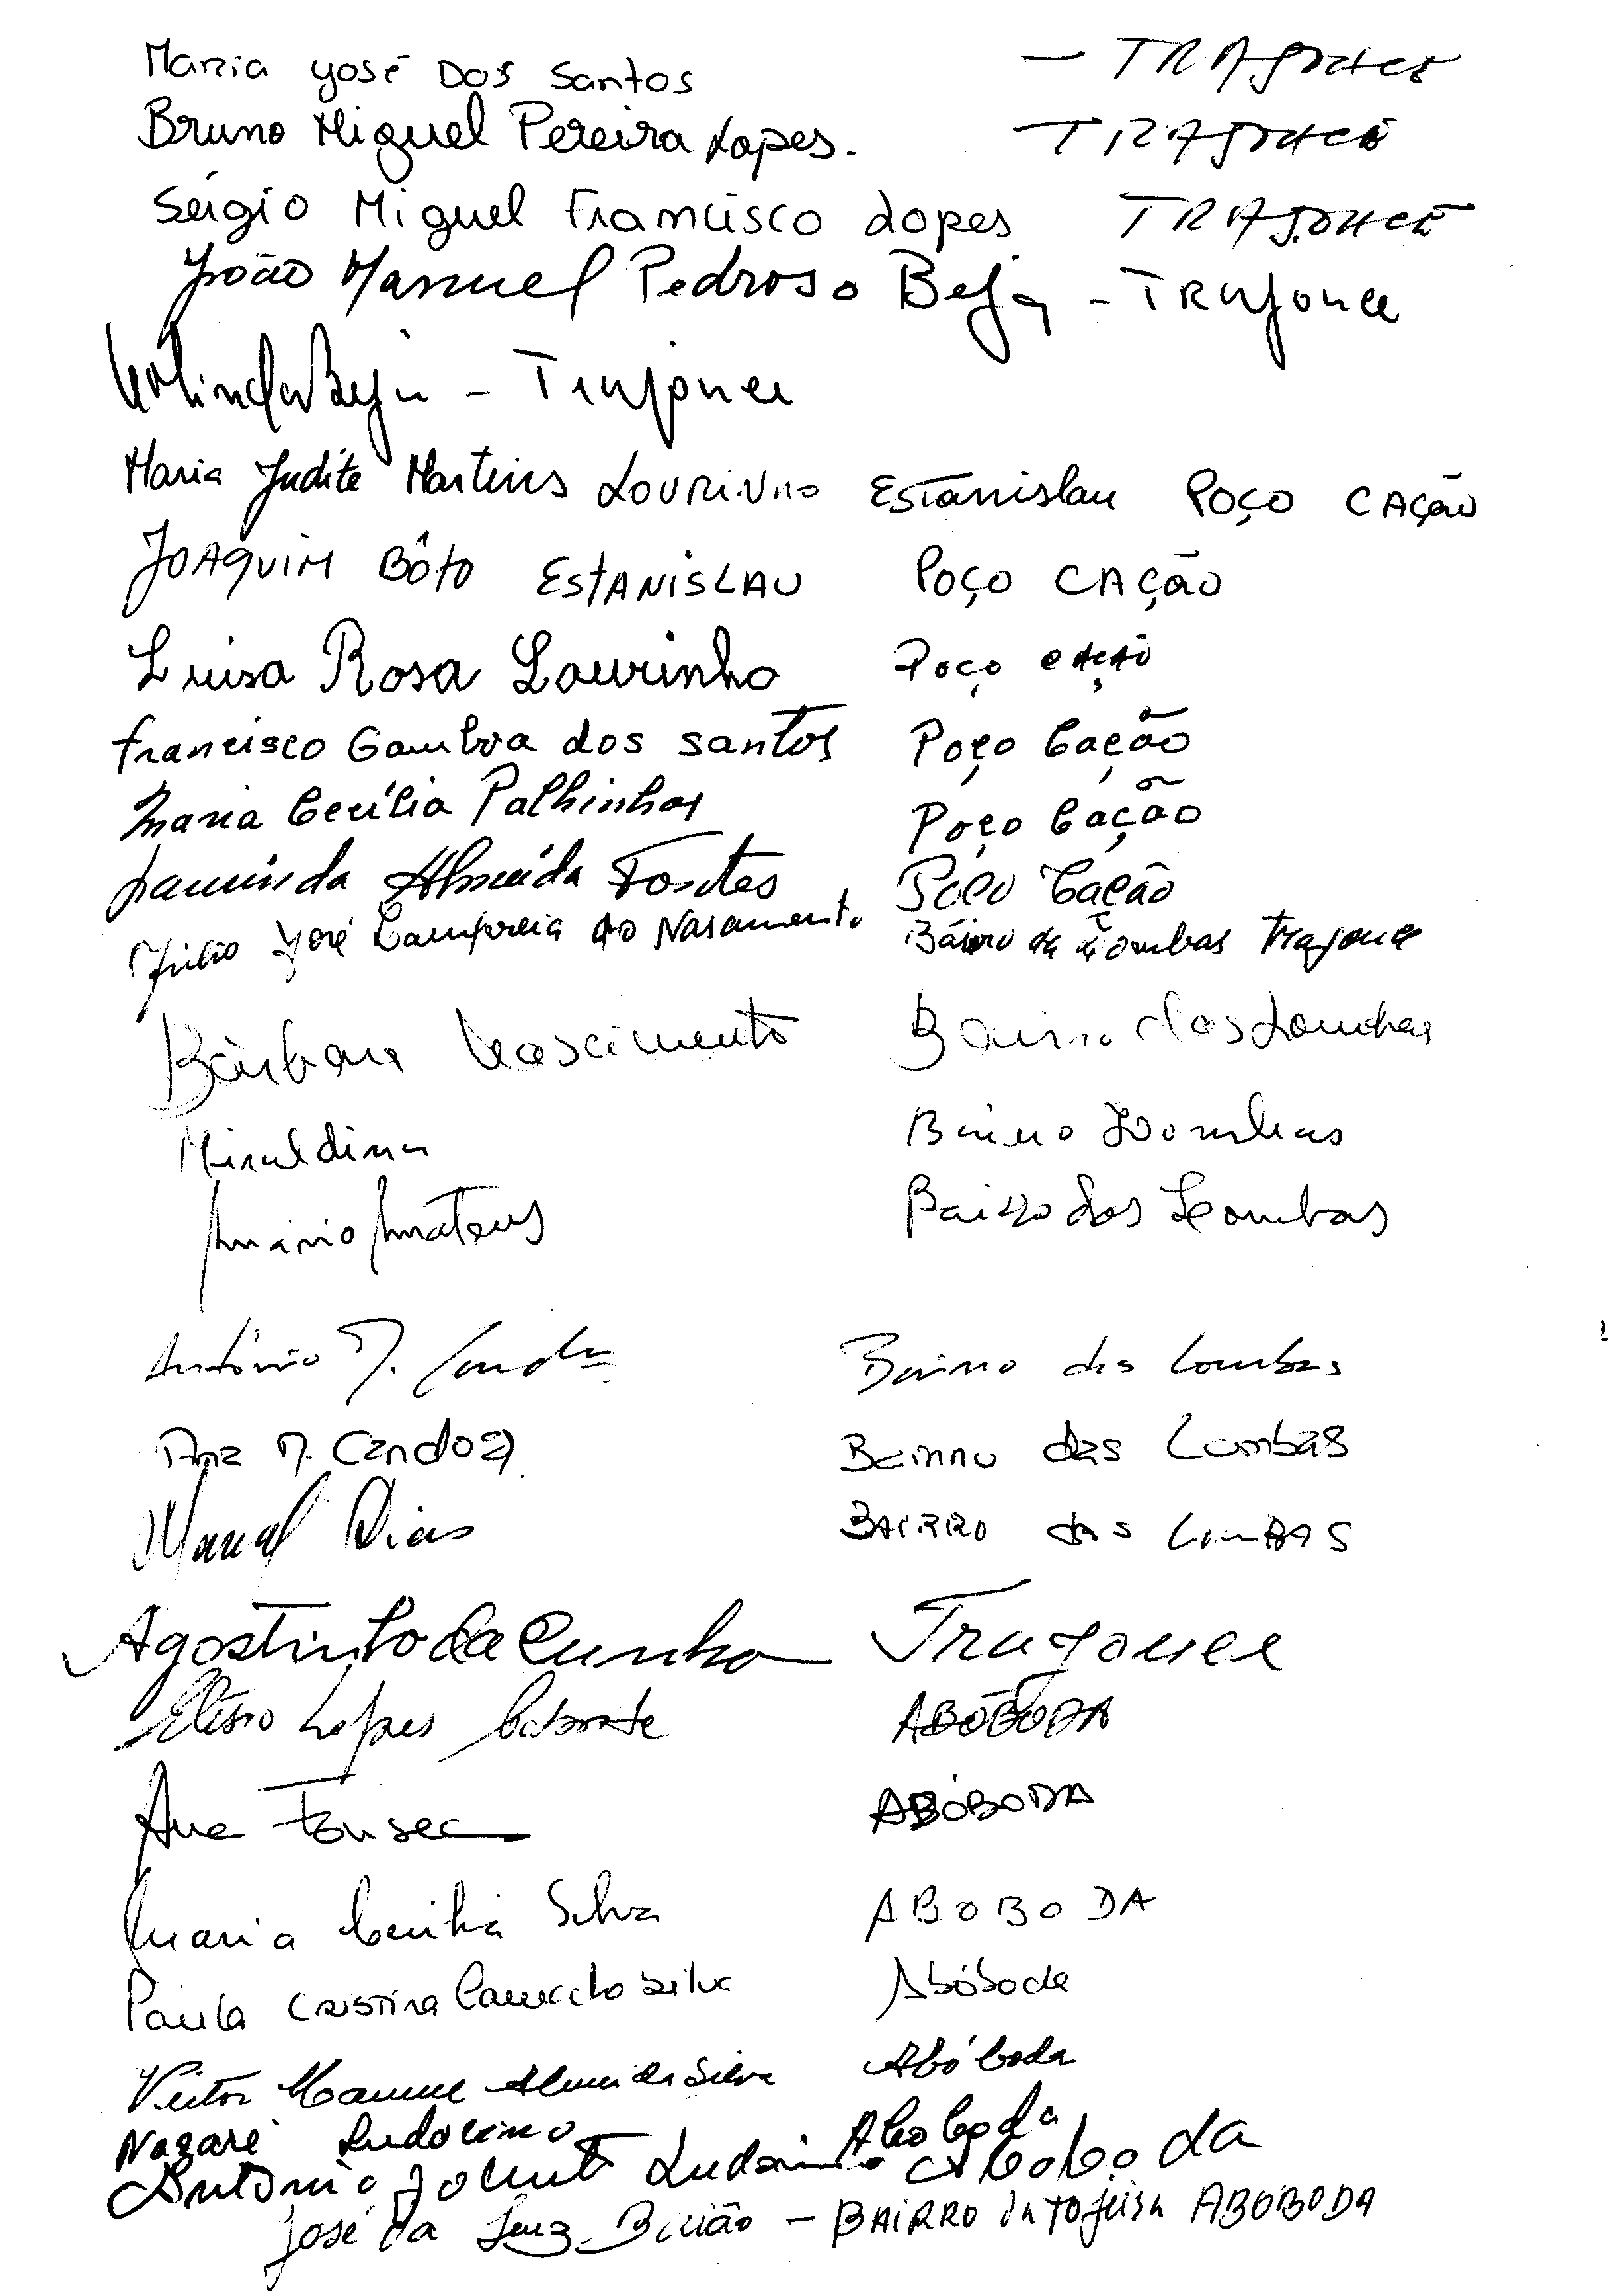 Maria José Dos Santos - TRAJOUCE
Bruno Miguel Pereira Lopes. TRAJOUCE
Sérgio Miguel Francisco Lopes TRAJOUCE
João Manuel Pedroso Beja - TRAJouce
Beja - Trajouce
Maria Judite Martins Lourinho Estanislau Poço CAção
JOAQUIM BÔTO ESTANISLAU Poço CAção
Luisa Rosa Lourinho Poço cação
Francisco Gamboa dos santos Poço Cação
Maria Cecília Palhinhas Poço Cação
Almeida Fontes Poço Cação
Júlio José do Nascimento Bairro das Lombas Trajouce
Bárbara Nascimento Bairro das Lombas
Miraldina Bairro Lombas
Mário Mateus Bairro das Lombas
António J. Bairro das Lombas
Ana M. Bairro das Lombas
Manuel Dias BAIRRO das LOMBAS
Agostinho da Cunha Trajouce
Elísio Lopes ABÓBODA
Ana Fonseca ABÓBODA
Maria Cecília Silva ABOBODA
Paula Cristina Silva Abóboda
Vitor Manuel Almeida Silva Abóboda
Nazaré Ludovino Aboboda
António Ludovino Aboboda
José da Luz Baião - BAIRRO ABOBODA